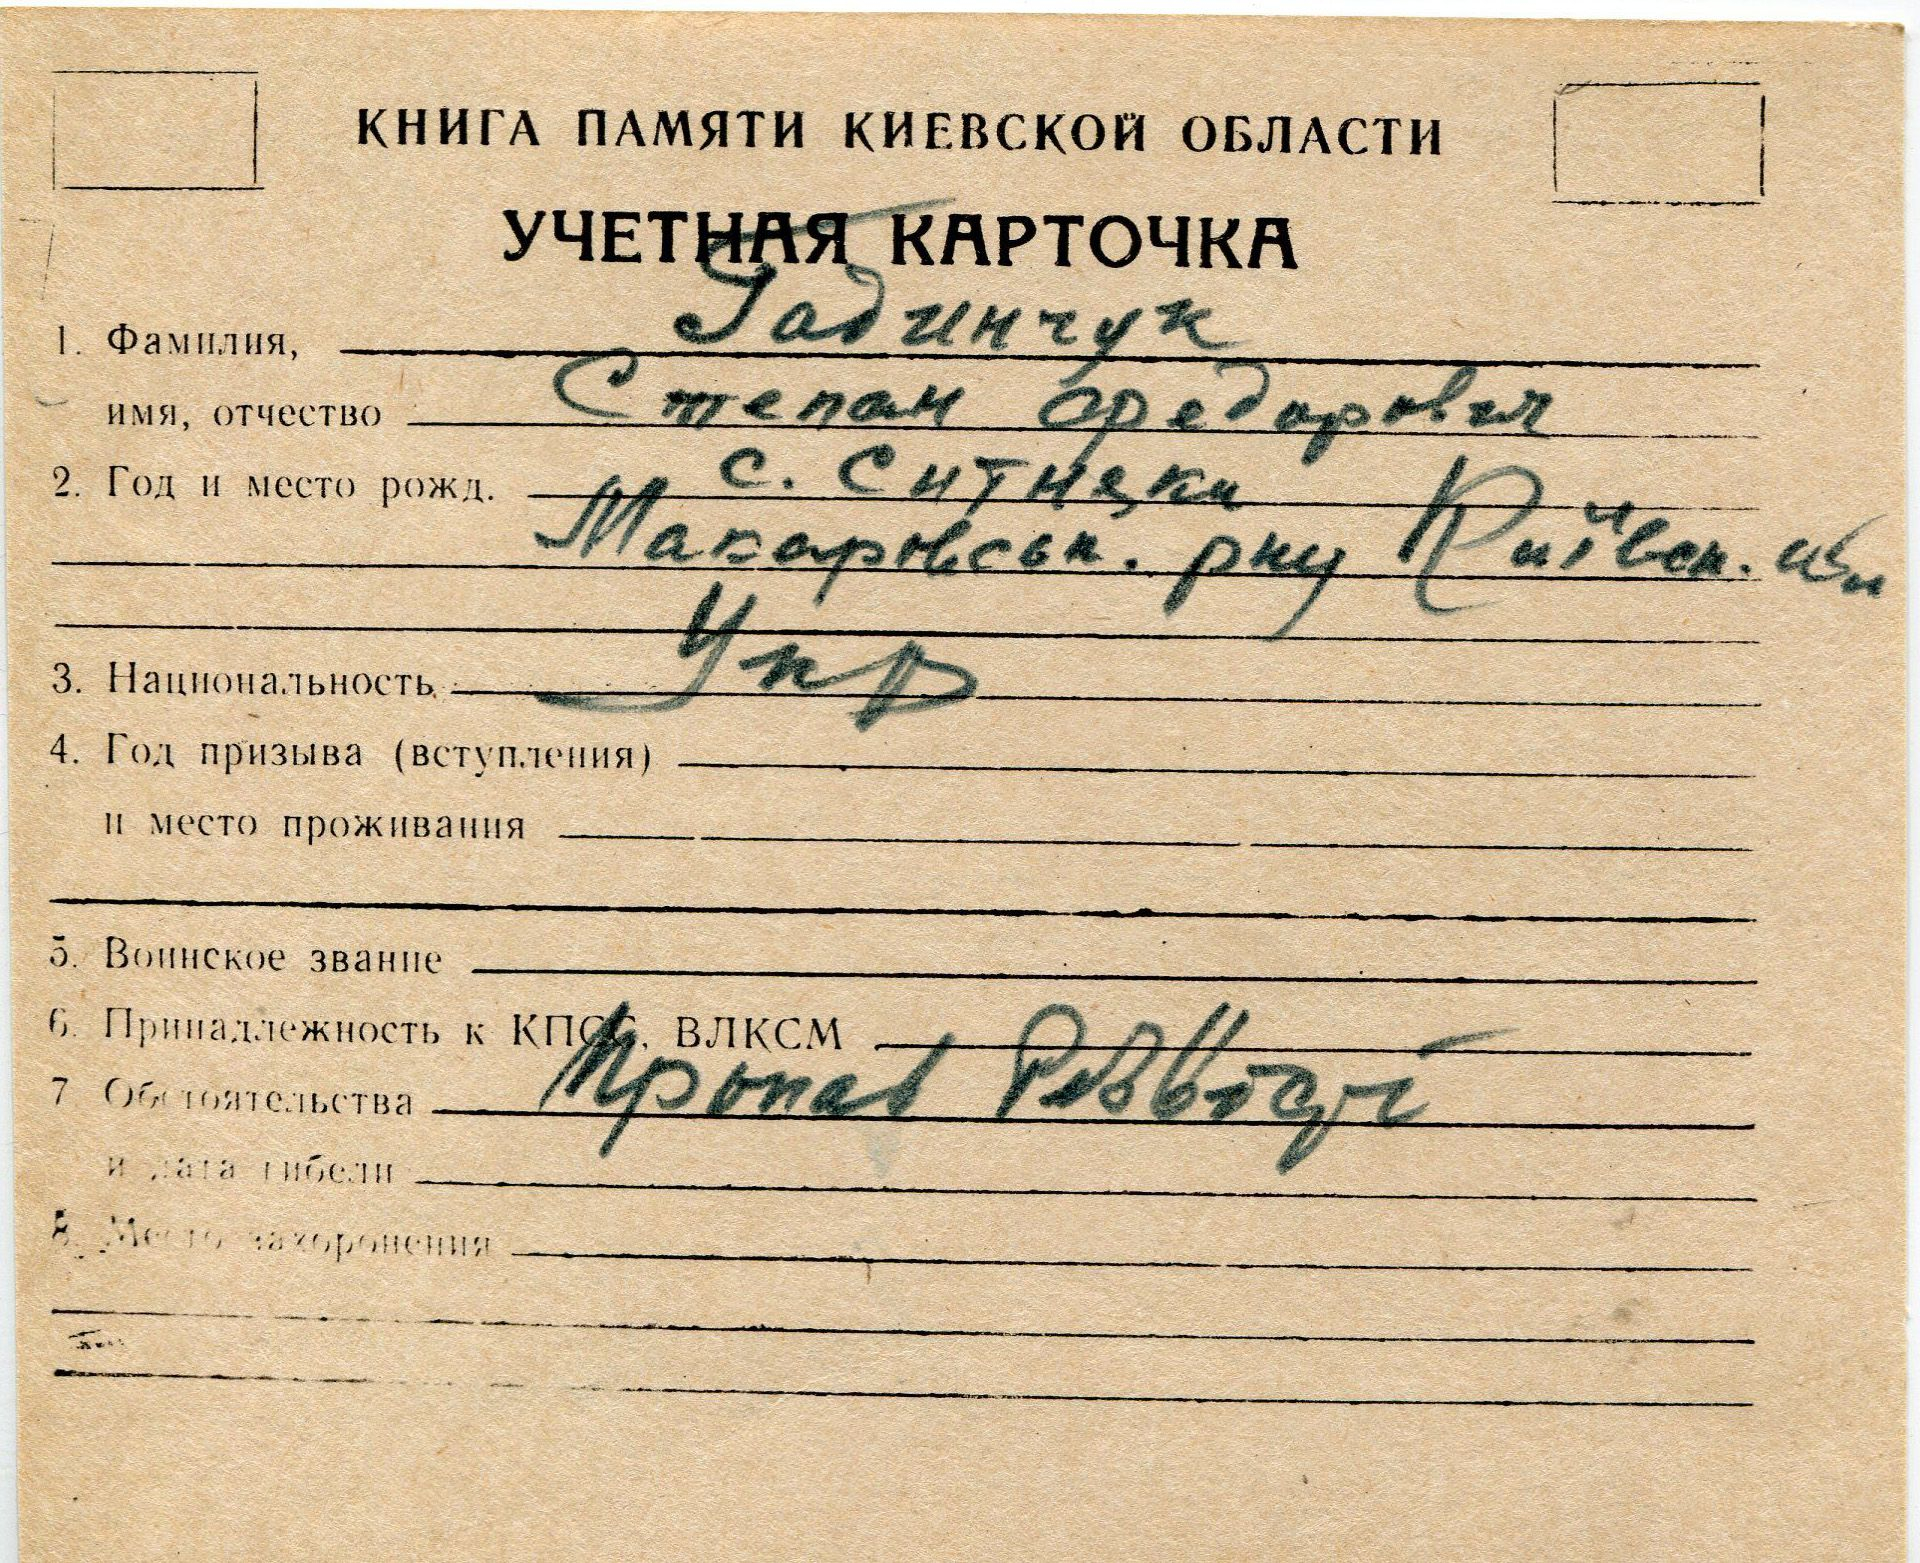 КНИГА ПАМЯТИ КИЕВСКОЙ ОБЛАСТИ
УЧЕТНАЯ КАРТОЧКА
1. Фамилия, Гадинчук
имя, отчество Степан Федорович
2. Год и место рожд. с. Ситняки
Макаровськ. р-ну Київск.
3. Национальность Укр
4. Год призыва (вступления)
и место проживания
5. Воинское звание
6. Принадлежность к КПСС, ВЛКСМ
7 Обстоятельства Пропав без вісті
и дата гибели
8. Место захоронения